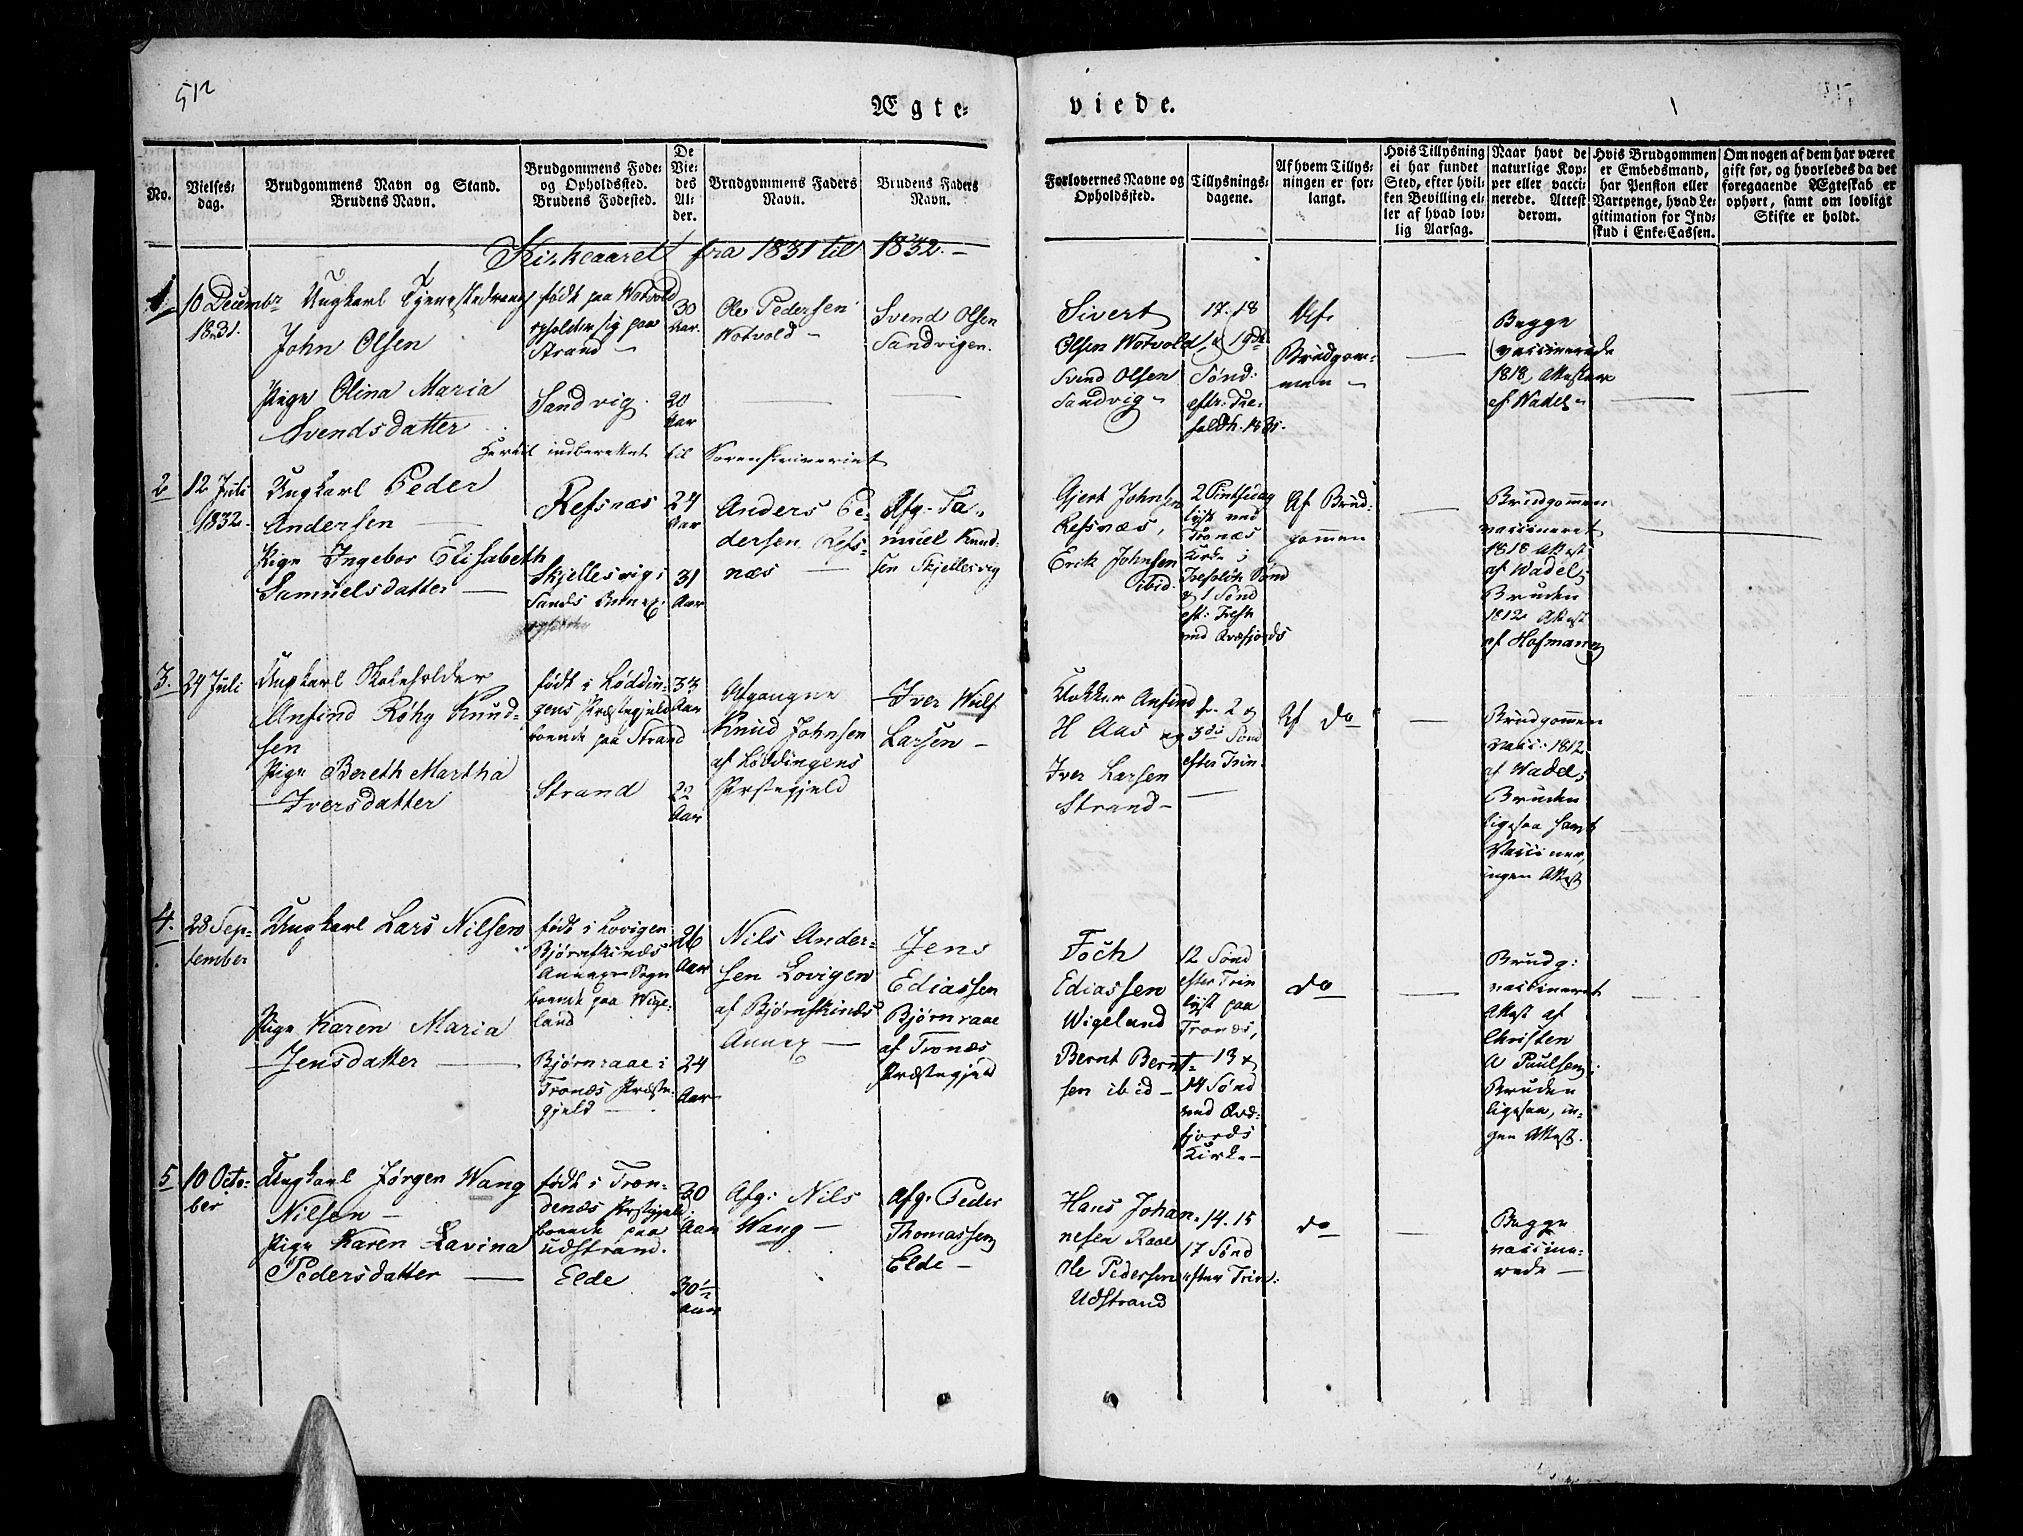 512
Ægte-
viede.
No.
Vielses-
dag.
Brudgommens Navn og Stand.
Brudens Navn.
Brudgommens Føde-
og Opholdssted.
Brudens Fødested.
De
Vie-
des
Al-
der.
Brudgommens Faders
Navn.
Brudens Faders
Navn.
Forlovernes Navne og
Opholdssted.
Tillysnings-
dagene.
Af hvem Tillys-
ningen er for-
langt.
Hvis Tillysning
ei har fundet
Sted, efter hvil-
ken Bevilling el-
ler af hvad lov-
lig Aarsag.
Naar havt de
naturlige Kop-
per eller vacci-
nerede. Attest
derom.
Hvis Brudgommen
er Embedsmand,
har Pension eller
Vartpenge, hvad Le-
gitimation for Ind-
skud i Enke-Cassen.
Om nogen af dem har været
gift før, og hvorledes da det
foregaaende Ægteskab er
ophørt, samt om lovligt
Skifte er holdt.
Kirkeaaret fra 1831 til 1832.
1
10 Decembr
1831.
Ungkarl Tjenestedreng
John Olsen
Pige Olina Maria
Svendsdatter
født paa Wotvold
opholder sig paa
Strand
Sandvig
30
Aar.
20
Aar
Ole Pedersen
Wotvold
Svend Olsen
Sandvigen.
Sivert
Olsen Wotvold
Svend Olsen
Sandvig
17. 18
& 19de
Sønd:
eftr. Tre-
foldh. 1831.
Af
Brudgom-
men
Begge
vaccinerede
1818 Attester
af Wadel
Hertil indberettet til Sorenskriveriet
2
12 Juli
1832.
Ungkarl Peder
Andersen
Pige Ingebor Elisabeth
Samuelsdatter
Refsnæs
Skjellesvig i
Sands Annex.
24
Aar
31
Aar
Anders Pe-
dersen Refs-
næs
Afg. Sa-
muel Knud-
sen Skjellesvig
Gjert Johnsen
Refsnæs,
Erik Johnsen
ibid.
2 Pintsedag
lyst ved
Tronæs
Kirke i
Trefoldh Sønd
& 1 Sønd
eft: Trefh
ved Qvæfjords
Af Brud-
gommen
Brudgommen
vaccineret
1818 Attest
af Wadel
Bruden
1812 Attest
af Hofmann
3.
24 Juli
Ungkarl Skoleholder
Anfind Røhg Knud-
sen
Pige Bereth Martha
Iversdatter
født i Løddin-
gens Præstegjeld
boende paa Strand
Strand
33
Aar
22
Aar
Afgangne
Knud Johnsen
af Løddingens
Præstegjeld
Iver Wulf
Larsen
Klokker Anfind
H Aas og
Iver Larsen
Strand
2 &
3die Sønd
efter Trin.
Af do
Brudgommen
vacc: 1812
af Wadel;
Bruden
ligesaa samt
Vacciner,
ingen Attest
4.
28 Sep-
tember
Ungkarl Lars Nilsen
Pige Karen Maria
Jensdatter
født i Lovigen
Bjørnskinds
Annexe Sogn
boende paa Wige-
land
Bjørnraae i
Tronæs Præste-
gjeld
26
Aar
24
Aar
Nils Ander-
sen Lovigen
af Bjørnskinds
Annex
Jens
Ediassen
Bjørnraae
af Tronæs
Præstegjeld
Foch
Ediassen
Wigeland
Bernt Bernt-
sen ibid
12 Sønd
efter Trin
lyst paa
Tronæs,
13 &
14 Sønd
ved Qvæ-
fjords
Kirke
do
Brudg:
vaccineret
Attest af
Christen
A Paulsen;
Bruden
ligesaa, in-
gen Attest.
5
10 Octo-
ber
Ungkarl Jørgen Wang
Nilsen
Pige Karen Lavina
Pedersdatter
født i Tron-
denæs Præstegjeld
boende paa
Udstrand.
Elde
30
Aar
30½
Aar
Afg: Nils
Wang
Afg: Peder
Thomassen
Elde
Hans Johan-
nesen Raae
Ole Pedersen
Udstrand
14. 15
17 Sønd
efter Trin:
do
Begge
vaccine-
rede